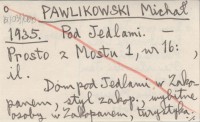 PAWLIKOWSKI Michał
1935. Pod Jedlami. —
Prosto z Mostu 1, nr 16:
il.
Dom pod Jedlami, w Zako-
panem, styl zakop., wybitne
osoby w Zakopanem, turystyka.